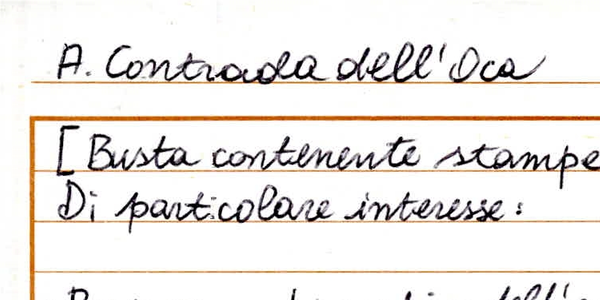 A. Contrada dell'Oca
[Busta contenente stampe
Di particolare interesse: